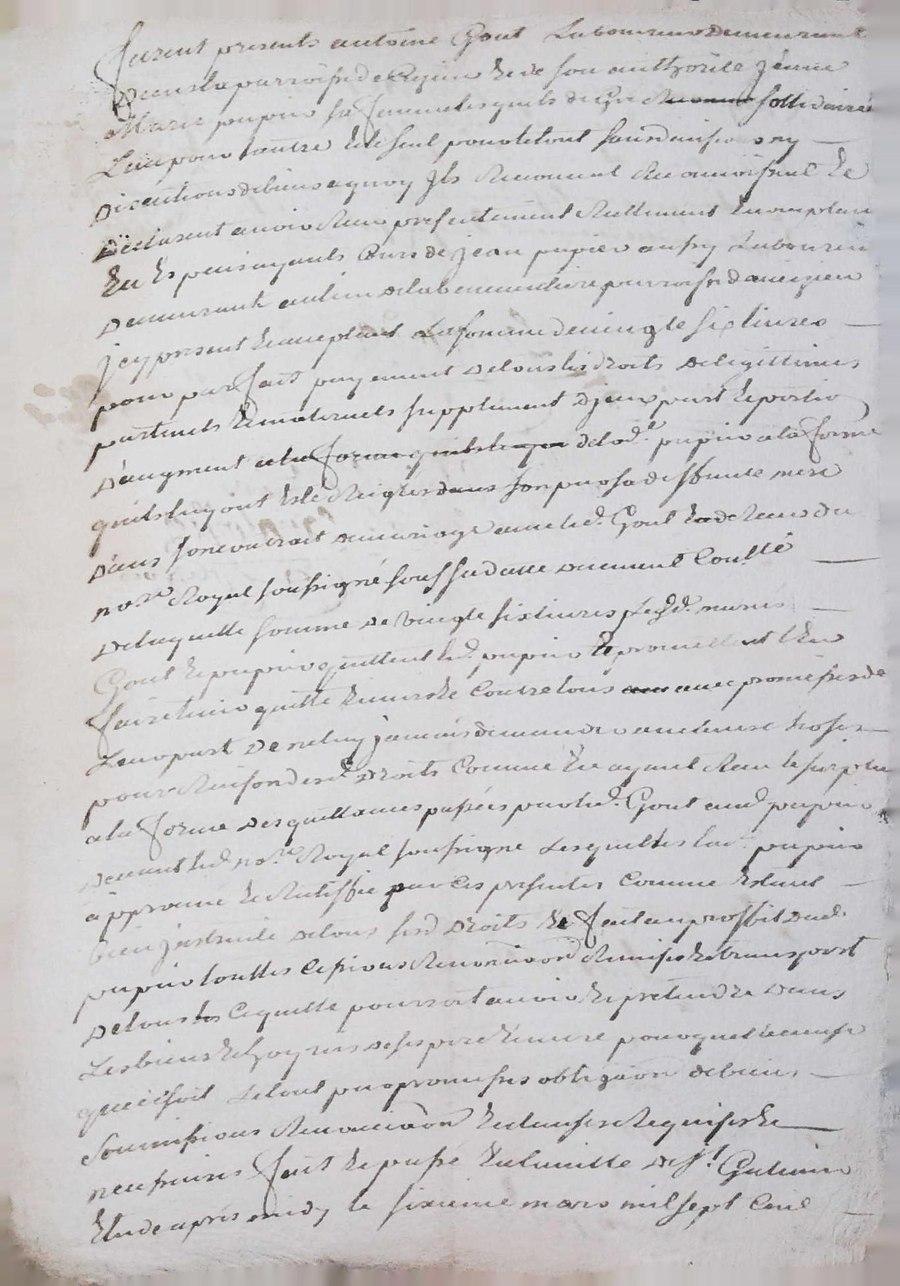 furent presents antoine Gout Laboureur demeurant
dans la parroisse de et de son authorite Jeanne
Marie pupier sa femme lesquels de gre sollidairement
L'un pour l'autre et le seul pour le tout sans division ny
discutions de biens a quoy Ils Renoncent Reconnoissent et
déclarent avoir Receu presentement Reellement
En Espèces ayants Cours de jean pupier aussy Laboureur
demeurant au lieu de parroisse d'aveizieu
jcy present et acceptant La somme de vingt et six livres
pour parfait payement de tous les droits de legittimes
paternels et maternels supplement d'jceux part et portion
d'augment de lad.e pupier a la forme
qu'ils luy ont este Reiglés dans defunte mere
dans son contrait de mariage avec led. Gout Receus du
no.re Royal soussigné sous sa datte deument Con.llé
de laquelle somme de vingt et six livres Lesd. mariés
Gout et pupier quittent led. pupier et promettent l'En
faire tenir quitte Envers et Contre tous avec promesses de
Leur part de ne luy jamais demander auctune chose
pour Raison desd. droits Comme En ayant Receu le surplus
a la forme des quittances passées par led. Gout aud. pupier
devant led. no.re Royal soussigné Lesquelles lad. pupier
approuve et Ratiffie par Ces presentes Comme Estant
bien jnstruite de tous sesd. droits Et fait au proffit dud.
pupier touttes Cessions Renonciaôn Remises et transport
de tous Ce qu'elle pourroit avoir et prétendre dans
Les biens et hoyries de ses pere et mere pour quelle cause
que ce soit Le tout par promesses obligaôn de biens
soumissions Renonciaôn et clauses Requises et
necessaires fait et passé En la ville de St. Galmier
Etude apres midy le sixieme mars mil sept Cent